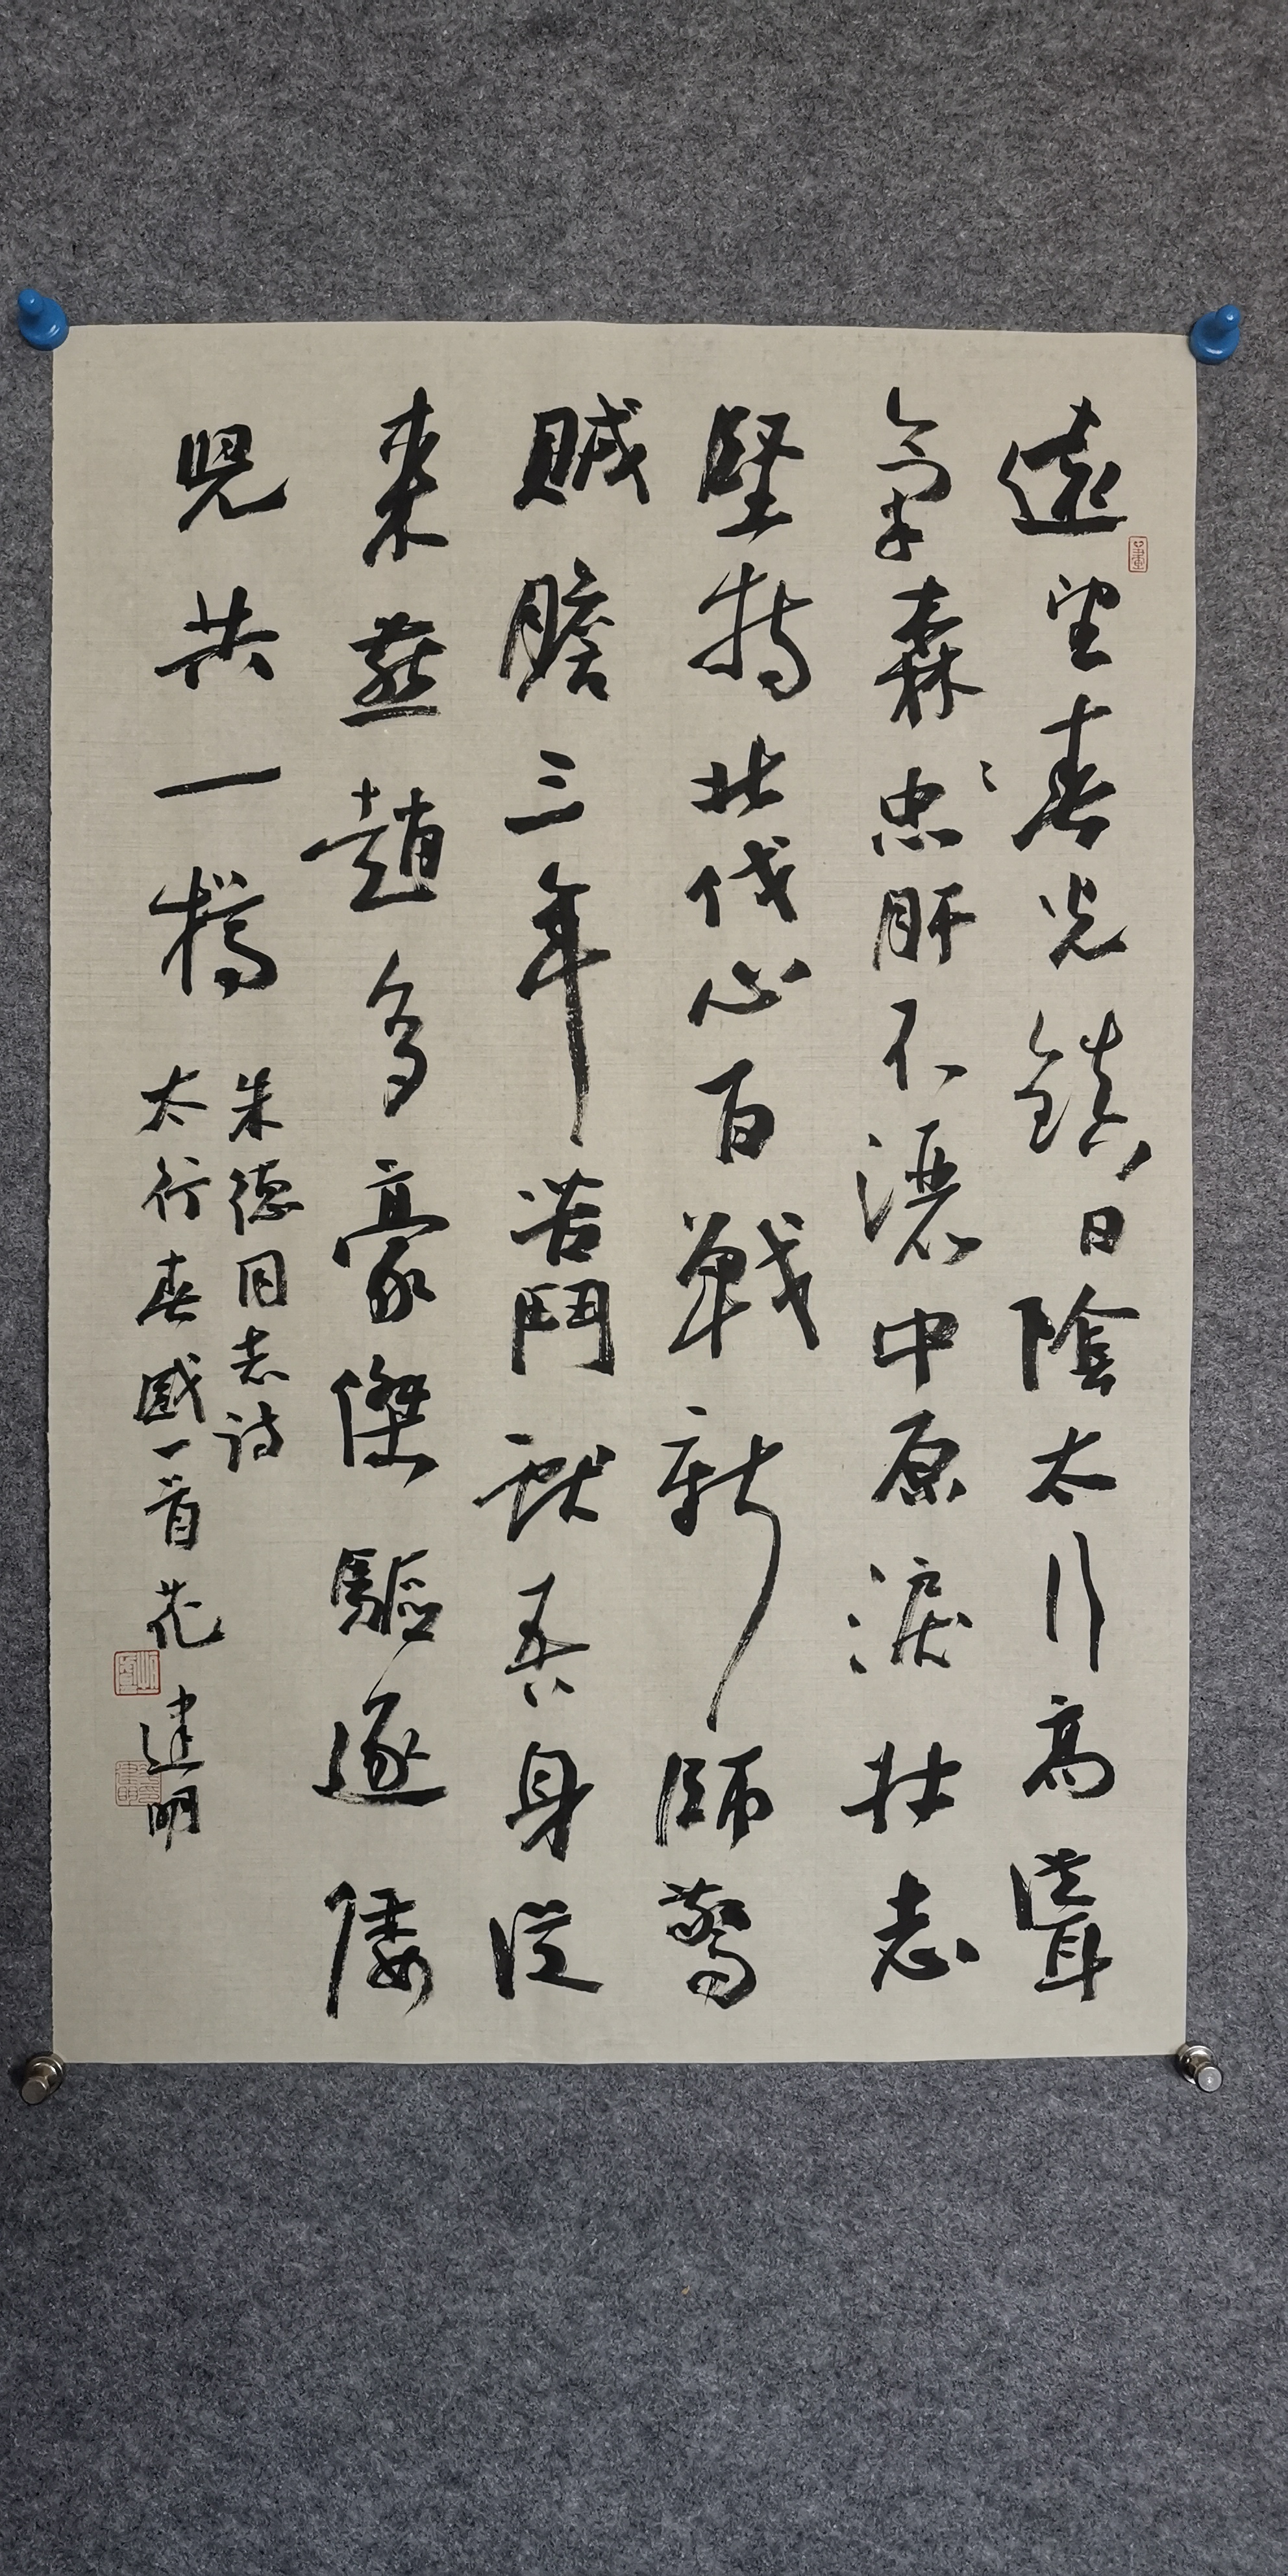 遠望春光鎮日陰太行高聳
氣森〻忠肝不灑中原淚壯志
堅持北伐心百戰新師驚
賊膽三年苦鬥獻吾身從
來燕趙多豪傑驅逐倭
兒共一樽
朱德同志詩
太行春感一首 建明